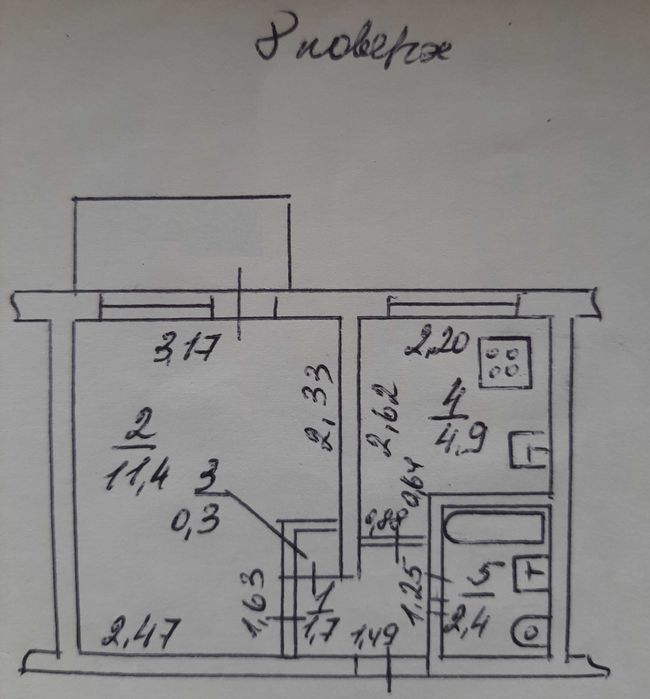 8 поверх
3,17
2,20
2,33
2,62
4
4.9
2
11,4
3
0,3
0,64
0,88
1,63
1
1,7
1,25
5
2,4
2,47
1,49